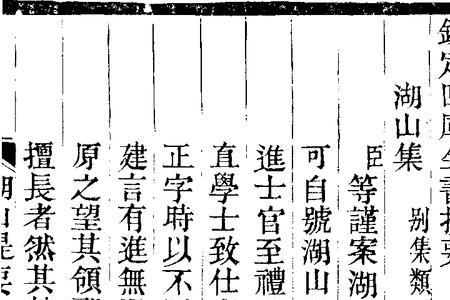 欽定四庫全書提要
湖山集 别集類
臣等謹案湖
可自號湖山
進士官至禮
直學士致仕
正字時以不
建言有進無
原之望其領
擅長者然其